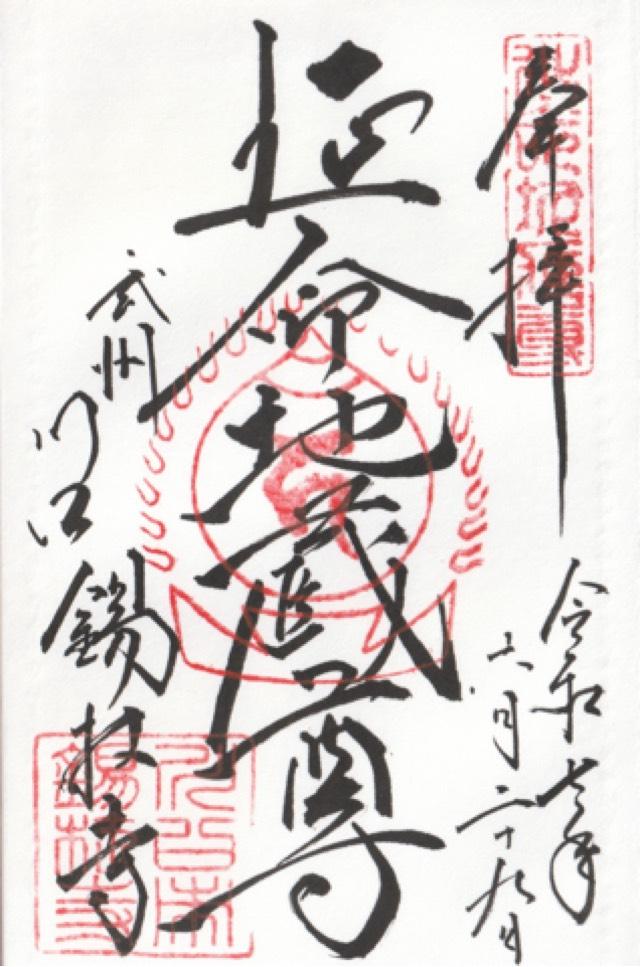 奉拝
令和七年
六月二十九日
延命地蔵尊
武州
川口
錫杖寺